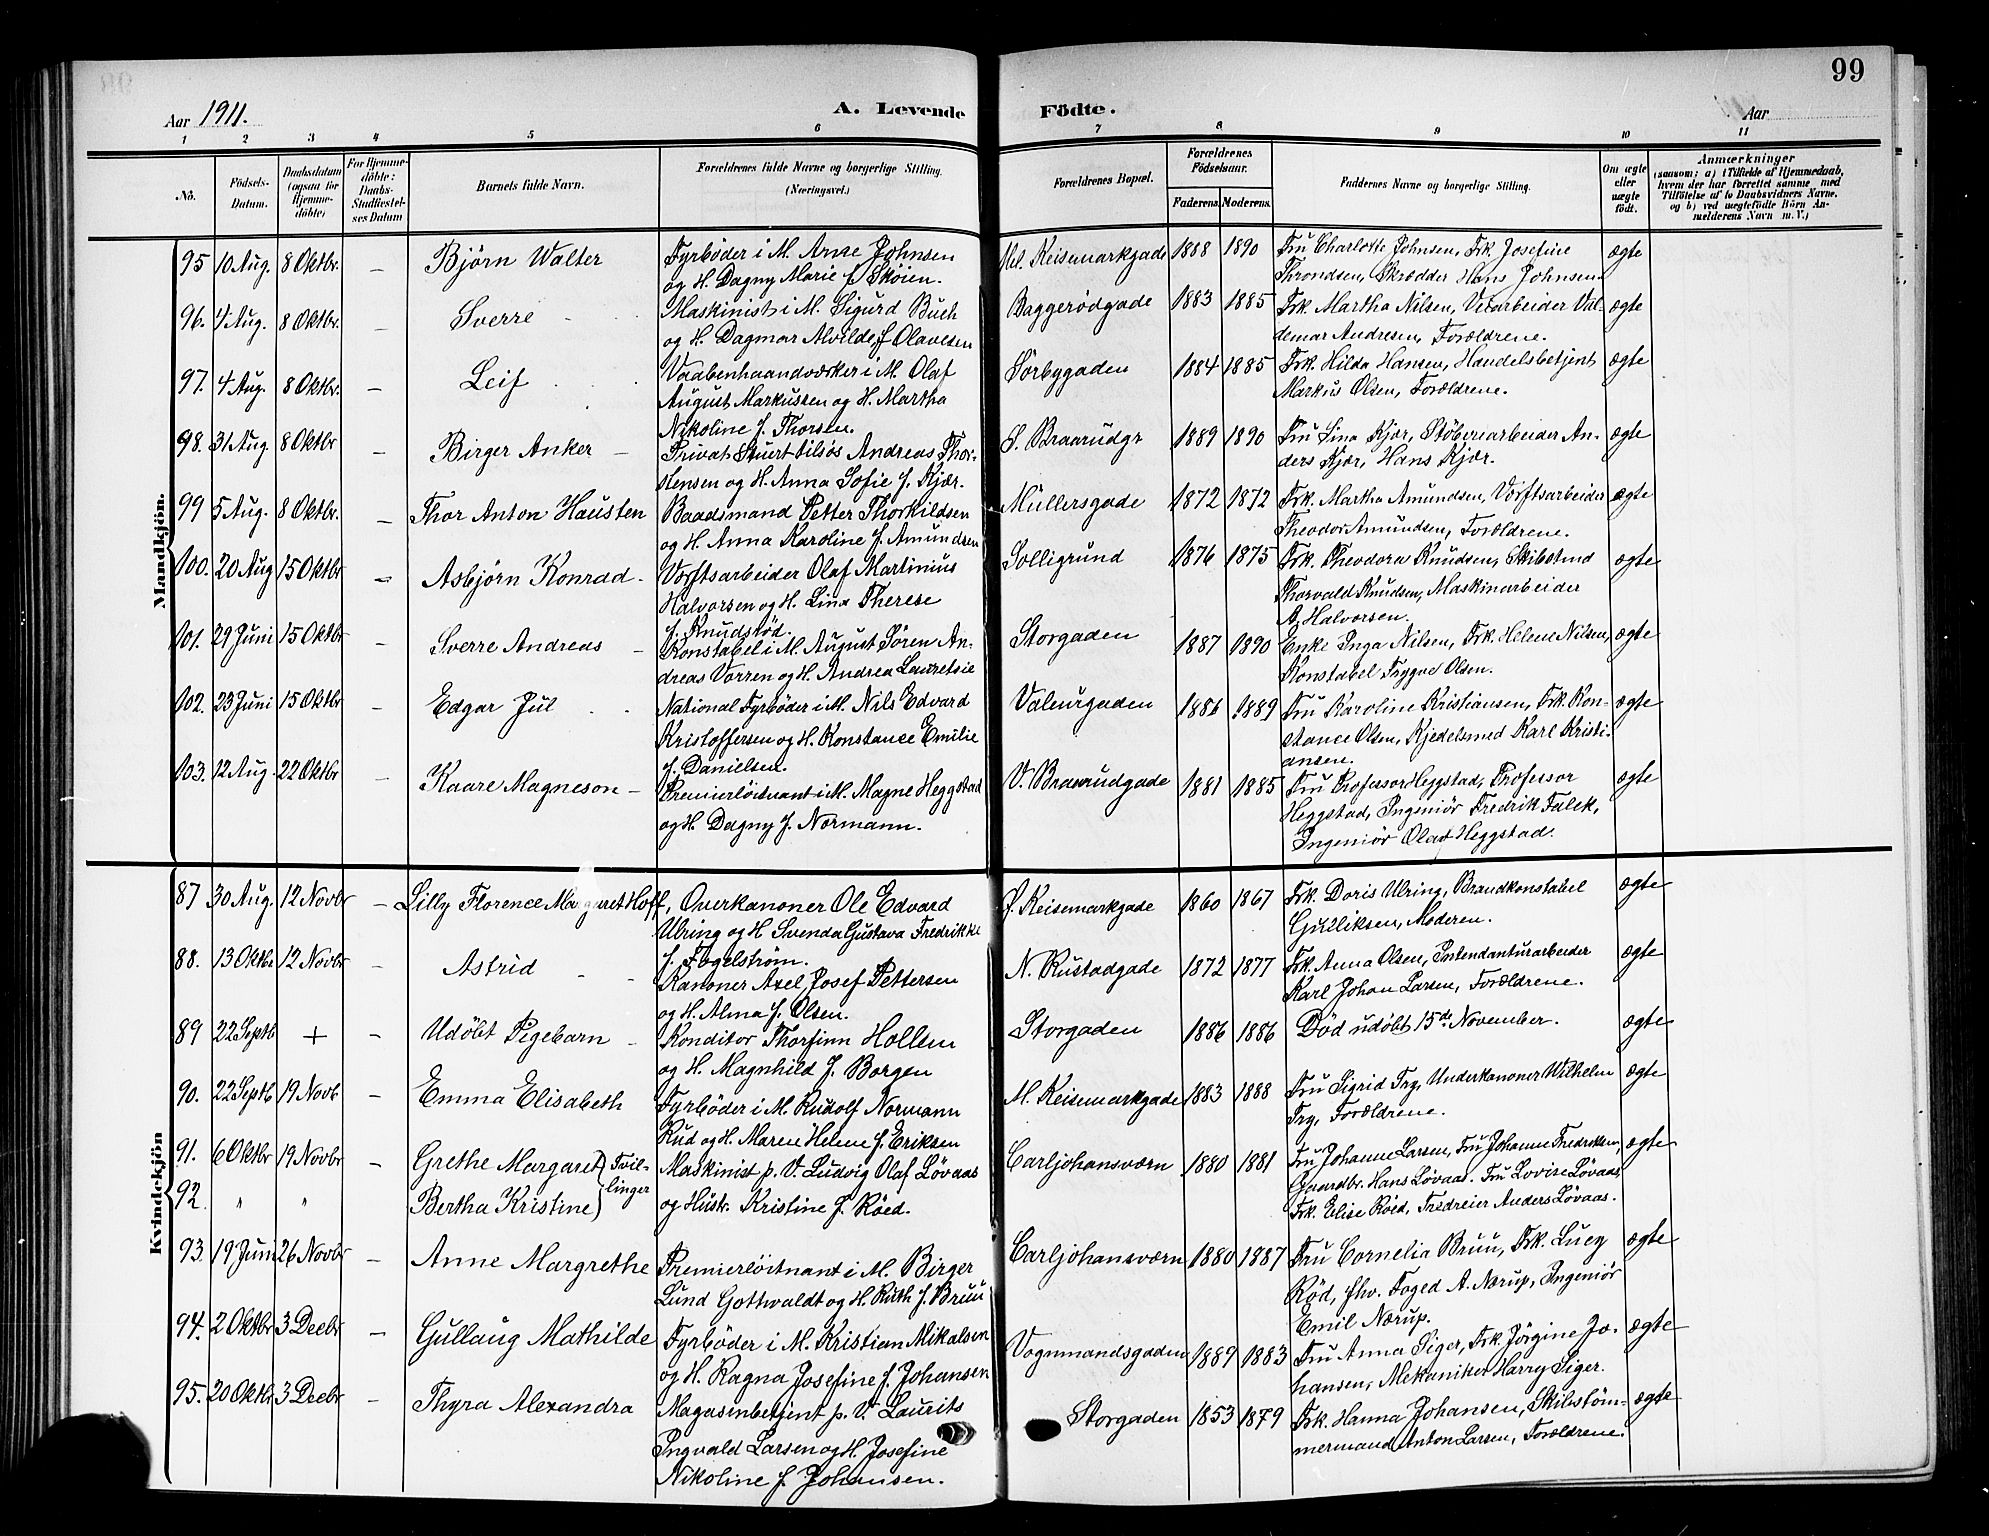 99
Aar 1911. A. Levende Födte. Aar
1 2 3 4 5 6 7 8 9 10 11
No. Födsels-Datum. Daabsdatum (ogsaa for Hjemmedöbte) For Hjemmedöbte: Daabs-Stadfæstelses Datum Barnets fulde Navn. Forældrenes fulde Navne og borgerlige Stilling. (Næringsvei.) Forældrenes Bopæl. Forældrenes Födselsaar. Faderens. Moderens. Faddernes Navne og borgerlige Stilling. Om ægte eller uægte födt. Anmærkninger (saasom: a) i Tilfælde af Hjemmedaab, hvem der har forrettet samme med Tilföielse af to Daabsvidners Navne. og b) ved uægtefödte Börn Anmelderens Navn m. V.)
Mandkjön.
95 10 Aug. 8 Oktbr. – Bjørn Walter Fyrbøder i M. Arne Johnsen Ml. Keisemarkgade 1888 1890 Fru Charlotte Johnsen, Frk. Josefine ægte
og H. Dagny Marie f. Skøien. Throndsen, Skrædder Hans Johnsen.
96. 4 Aug. 8 Oktbr. – Sverre Maskinist i M. Sigurd Buch Baggerödgade 1883 1885 Frk. Martha Nilsen, Verarbeider Val- ægte
og H. Dagmar Alvilde f Olavesen demar Andresen, Forældrene.
97. 4 Aug. 8 Oktbr. – Leif Vaabenhaandværker i M. Olaf Sörbygaden 1884 1885 Frk. Hilda Hansen, Handelsbetjent ægte
August Markussen og H. Martha Markus Olsen, Forældrene.
Nikoline f. Thorsen.
98. 31 Aug. 8 Oktbr – Birger Anker – Privat Stuert tilsøs Andreas Thor- S. Braarudgr 1889 1890 Fru Lina Kjær, Støberiarbeider An- ægte
stensen og H. Anna Sofie f. Kjær. ders Kjær, Hans Kjær.
99 5 Aug. 8 Oktbr. – Thor Anton Hausten Baadsmand Petter Thorkildsen Müllersgade 1872 1872 Frk. Martha Amundsen, Værftsarbeider ægte
og H. Anna Karoline f. Amundsen Theodor Amundsen, Forældrene.
100. 20 Aug 15 Oktbr – Asbjørn Konrad – Værftsarbeider Olaf Martinius Solligrund 1876 1875 Frk. Theodora Knudsen, Skibstmd ægte
Halvorsen og H. Lina Therese Thorvald Knudsen, Maskinarbeider
f. Knudsröd. A. Halvorsen.
101. 29 Juni 15 Oktbr – Sverre Andreas – Konstabel i M. August Sören An- Storgaden 1887 1890 Enke Inga Nilsen, Frk. Helene Nilsen, ægte
dreas Vorren og H. Andrea Lauretsie Konstabel Trygve Olsen.
102. 23 Juni 15 Oktbr – Edgar Jul National Fyrbøder i M. Nils Edvard Valeurgaden 1886 1889 Fru Karoline Kristiansen, Frk. Kon- ægte
Kristoffersen og H. Konstance Emilie stance Olsen, Kjedelsmed Karl Kristi-
f. Danielsen. ansen.
103. 12 Aug. 22 Oktbr – Kaare Magneson – Premierløitnant i M. Magne Heggstad V. Braarudgade 1881 1885 Fru Professor Heggstad, Professor ægte
og H. Dagny f. Normann. Heggstad, Ingeniör Fredrik Falck,
Ingeniör Olav Heggstad.
Kvindekjön
87 30 Aug. 12 Novbr – Lilly Florence Margaret Hoff, Overkanoner Ole Edvard Ø. Keisemarkgade 1860 1867 Frk. Doris Ulring, Brandkonstabel ægte
Ulring og H Svenda Gustava Fredrikke Gulliksen, Moderen.
f. Fogelstrøm.
88. 13 Oktbr 12 Novbr – Astrid Kanoner Axel Josef Pettersen N. Rustadgade 1872 1877 Frk. Anna Olsen, Intendanturarbeider ægte
og H. Alma f. Olsen. Karl Johan Larsen, Forældrene.
89 22 Septb + – Udöbt Pigebarn – Konditor Thorfinn Hollem Storgaden 1886 1886 Död udöbt 15de November. ægte
og H. Magnhild f. Borgen
90. 22 Septb 19 Novb – Emma Elisabeth Fyrbøder i M. Rudolf Normann M. Keisemarkgade 1883 1888 Fru Sigrid Try, Underkanoner Wilhelm ægte
Rud og H. Maren Helene f. Eriksen Try, Forældrene.
91. 6 Oktbr 19 Novbr – Grethe Margaret Tvil- Maskinist p. V. Ludvig Olaf Løvaas Carljohansværn 1880 1881 Fru Johanne Larsen, Fru Johanne Fredriksen, ægte
92. " " Bertha Kristine linger og Hustr. Kristine f. Røed. Gaardbr. Hans Løvaas. Fru Lovise Løvaas,
Frk. Elise Røed, Fredreier Anders Løvaas.
93. 19 Juni 26 Novbr – Anne Margrethe Premierløitnant i M. Birger Carljohansværn 1880 1887 Fru Cornelia Bruu, Frk. Lucy ægte
Lund Gottwaldt og H. Ruth f. Bruu Röd, fhv. Foged A. Nærup, Ingeniör
Emil Nærup.
94. 2 Oktbr 3 Decbr – Gullaug Mathilde Fyrbøder i M. Kristian Mikalsen Vognmandsgaden 1889 1883 Fru Anna Siger, Frk. Jörgine Jo- ægte
og H. Ragna Josefine f. Johansen hansen, Mekaniker Harry Siger.
95. 20 Oktbr 3 Decbr – Thyra Alexandra Magasinbetjent p. V. Laurits Storgaden 1853 1879 Frk. Hanna Johansen, Skibstöm- ægte
Ingvald Larsen og H. Josefine mermand Anton Larsen, Forældrene.
Nikoline f. Johansen.